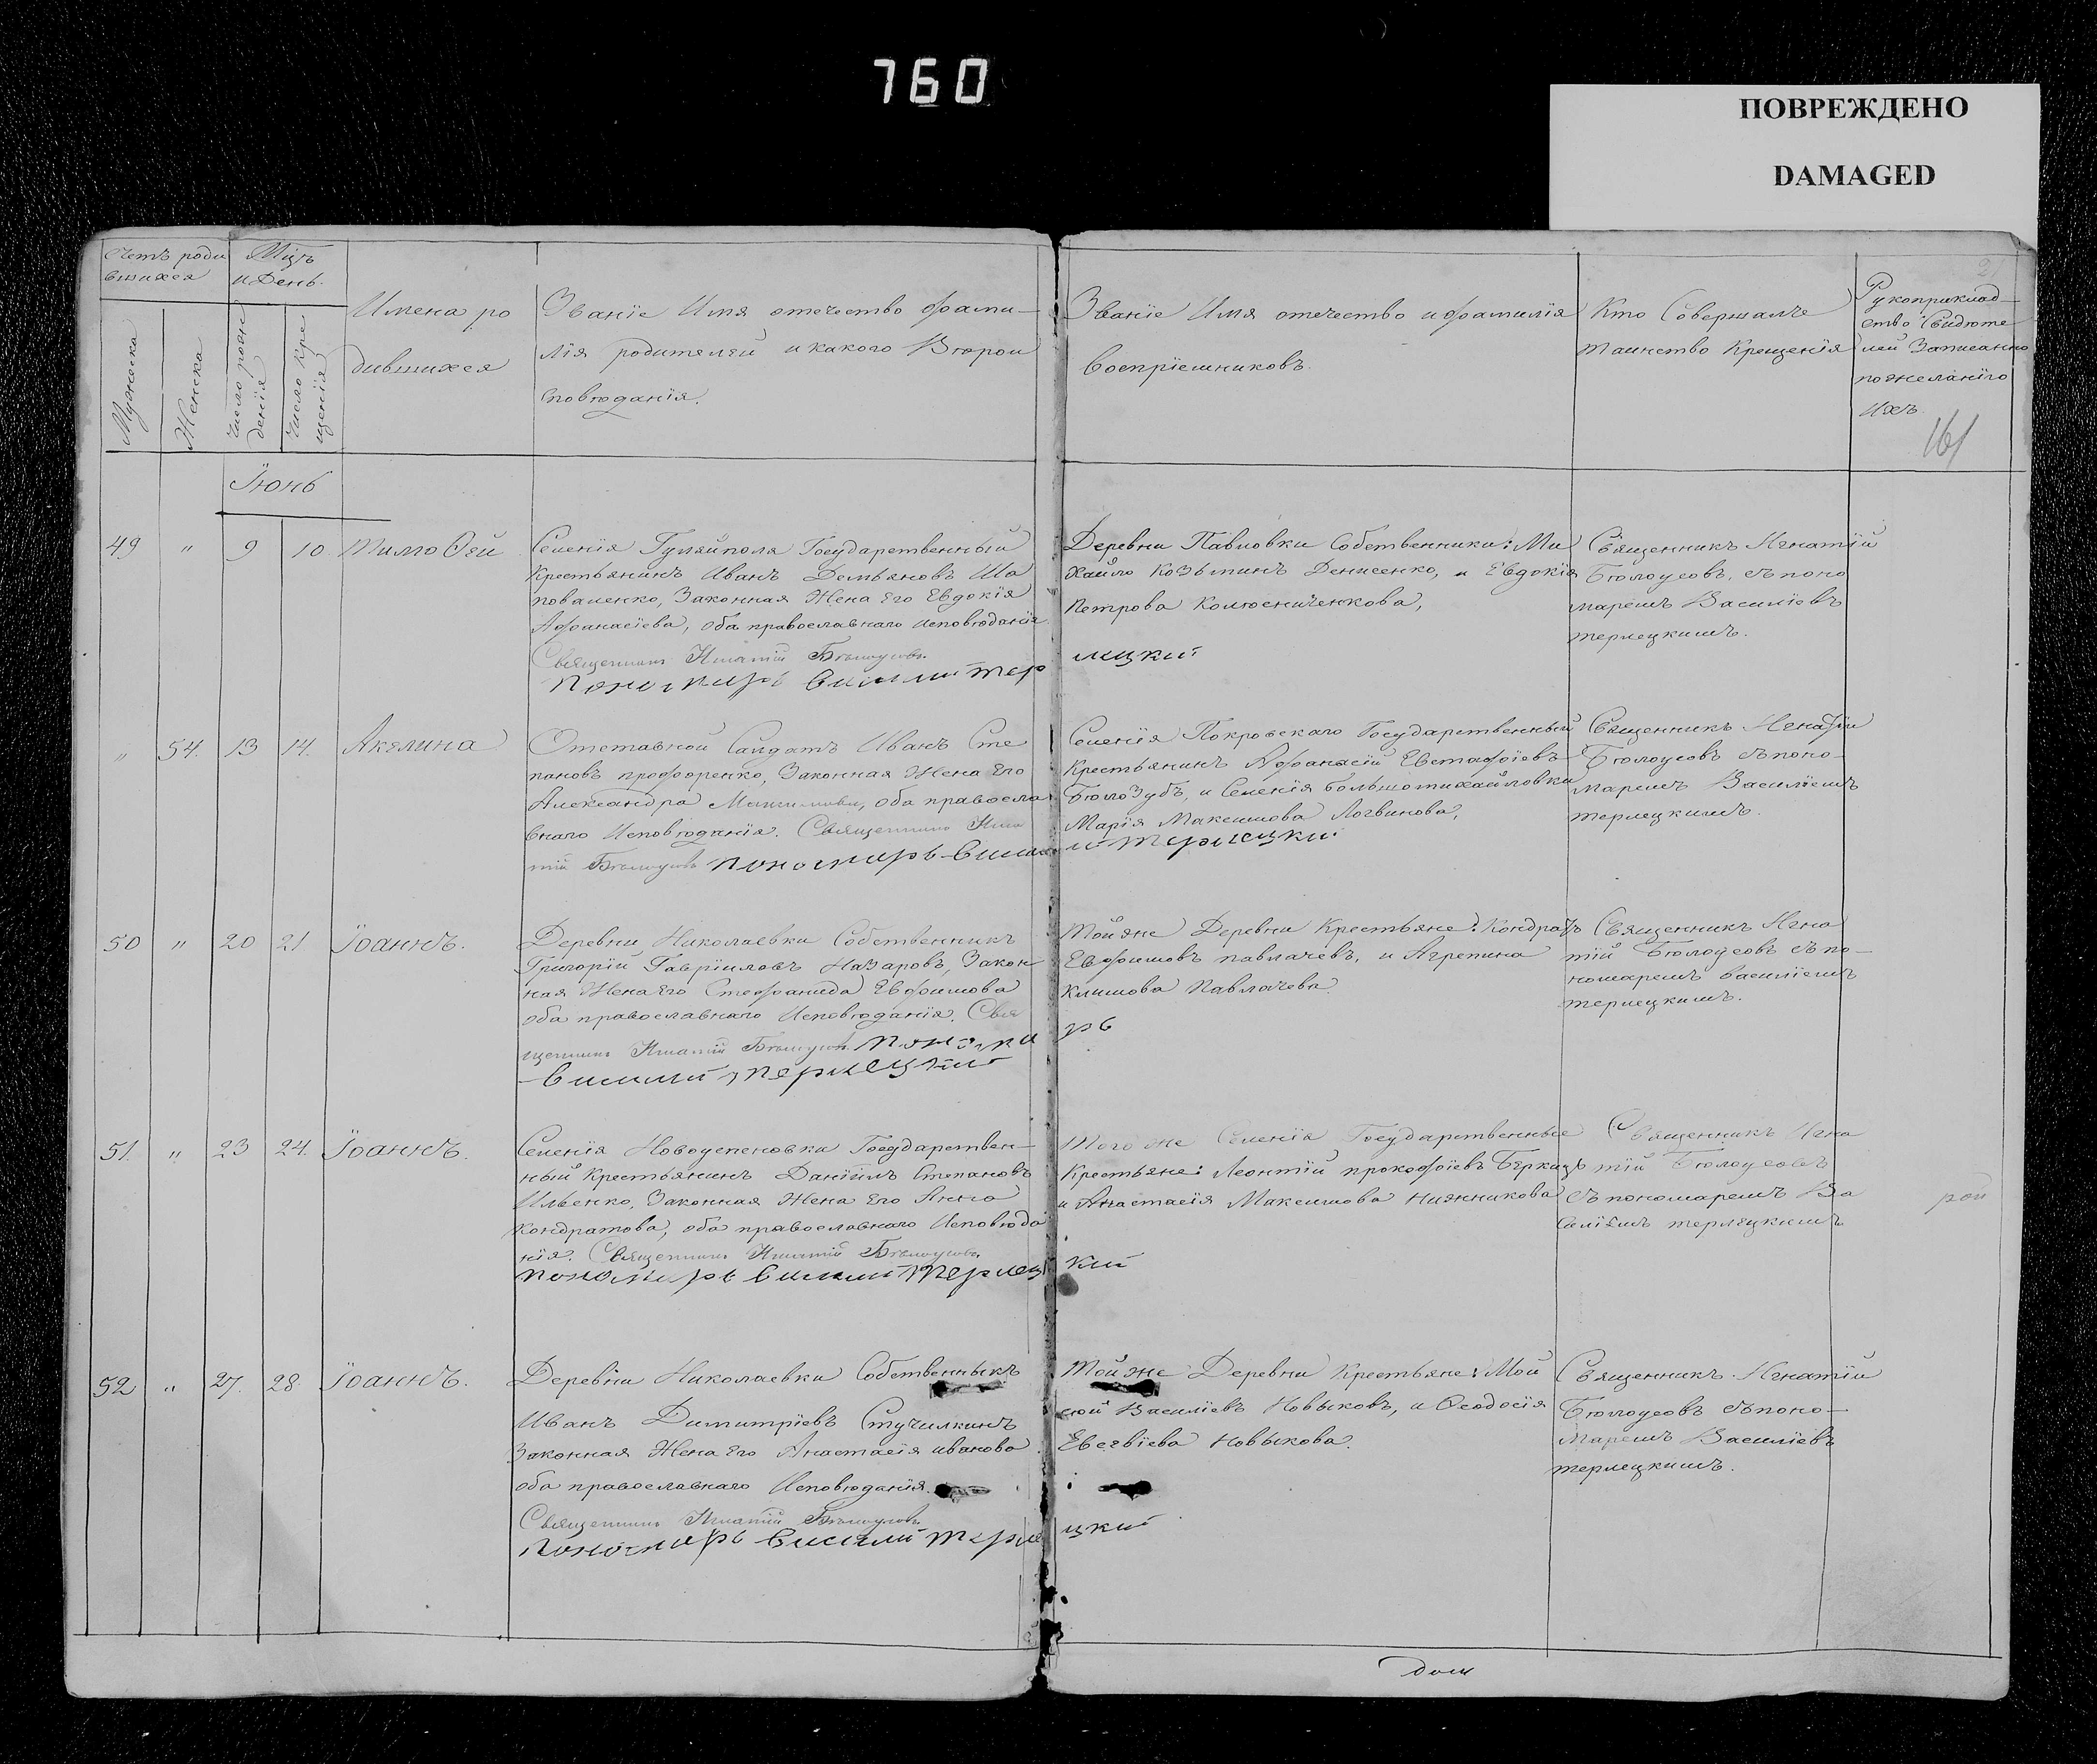 760
ПОВРЕЖДЕНО
DAMAGED
Счетъ роди
вшихся
Мужеска
Женска
Мцъ
и День.
Число рож
денія
Число Кре
щенія
Имена ро
дившихся
Званіе Имя отечество фами-
лія родителей и какого Вѣрои
сповѣданія.
Званіе Имя отечество и фамилія
воспріемниковъ.
Кто Совершалъ
таинство Крещенія
21
Рукоприклад-
ство Свидѣте
лей Записанно
по желанію
Ихъ
161
Іюнь
49 " 9 10 Тимоѳей
Селенія Гуляйполя Государственный
Крестьянинъ Иванъ Демьяновъ Ша
поваленко, Законная Жена Его Евдокія
Афанасіева, оба православнаго исповѣданія
Священникъ Игнатій Бѣлоусовъ
Пономарь Василій Тер лецкий
Деревни Павловки Собственники: Ми
хайло Козьминъ Денисенко, и Евдокія
Петрова Колѣсниченкова,
Священникъ Игнатій
Бѣлоусовъ, съ поно
маремъ Василіевъ
терлецкимъ.
" 54. 13 14. Акилина
Отставной Салдатъ Иванъ Сте
пановъ профоренко, Законная Жена Его
Александра Максимова, оба правосла
внаго Исповѣданія. Священникъ Игна
тій Бѣлоусовъ пономарь Василий терлецкий
Селенія Покровскаго Государственный
Крестьянинъ Афанасій Евстафіевъ
Бѣлозубъ, и Селенія большомихайловки
Марія Максимова Логвинова,
Священникъ Игнатій
Бѣлоусовъ съ поно-
маремъ Василіемъ
терлецкимъ.
50 " 20 21. Іоаннъ.
Деревни Николаевки Собственникъ
Григорій Гавріиловъ Назаровъ, Закон
ная Жена Его Стефанида Евфимова
оба православнаго Исповѣданія. Свя
щенникъ Игнатій Бѣлоусовъ Понома рь
Василий терлецкий
Той же Деревни Крестьяне: Кондратъ
Евфимовъ павлачевъ, и Агрепина
Климова Павлачева
Священникъ Игна
тій Бѣлоусовъ съ по-
номаремъ василіемъ
терлецкимъ.
51. " 23 24. Іоаннъ.
Селенія Новоуспеновки Государствен-
ный Крестьянинъ Даніилъ Степановъ
Ильенко, Законная Жена Его Анна
Кондратова, оба православнаго Исповѣда
нія. Священникъ Игнатій Бѣлоусовъ
пономарь Василий терлец кий
Того же Селенія Государственные
Крестьяне: Леонтій прокофіевъ
и Анастасія Максимова Нижникова
Священникъ Игна
тій Бѣлоусовъ
съ пономаремъ Ва
силіемъ терлецкимъ
52 " 27 28. Іоаннъ.
Деревни Николаевки Собственныкъ
Иванъ Димитріевъ Стучилкинъ
Законная Жена Его Анастасія иванова
оба православнаго Исповѣданія.
Священникъ Игнатій Бѣлоусовъ
Пономарь Василий терле цкий
Той же Деревни Крестьяне: Мои
сей Василіевъ Новыковъ, и Ѳеодосія
Евсевіева Новыкова.
Священникъ Игнатій
Бѣлоусовъ съ поно-
маремъ Василіевъ
терлецкимъ.